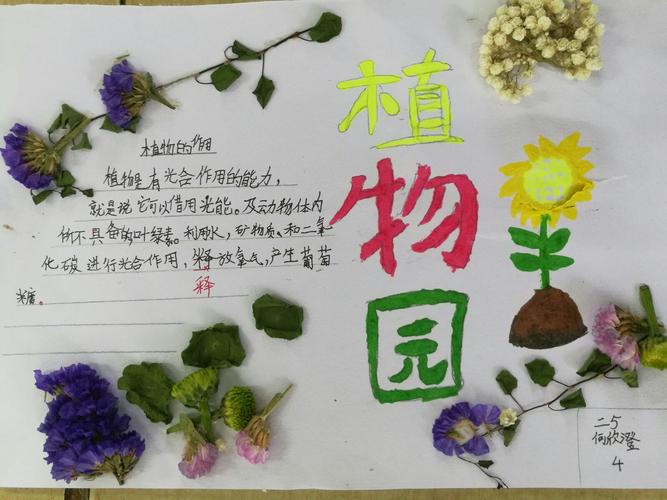 植物园
植物的作用
植物是有光合作用的能力,
就是说它可以借用光能。及动物体内
所不具备的叶绿素。利用水,矿物质、和二氧
化碳进行光合作用,释放氧气,产生葡萄
释
糖。
二5
何欣澄
4